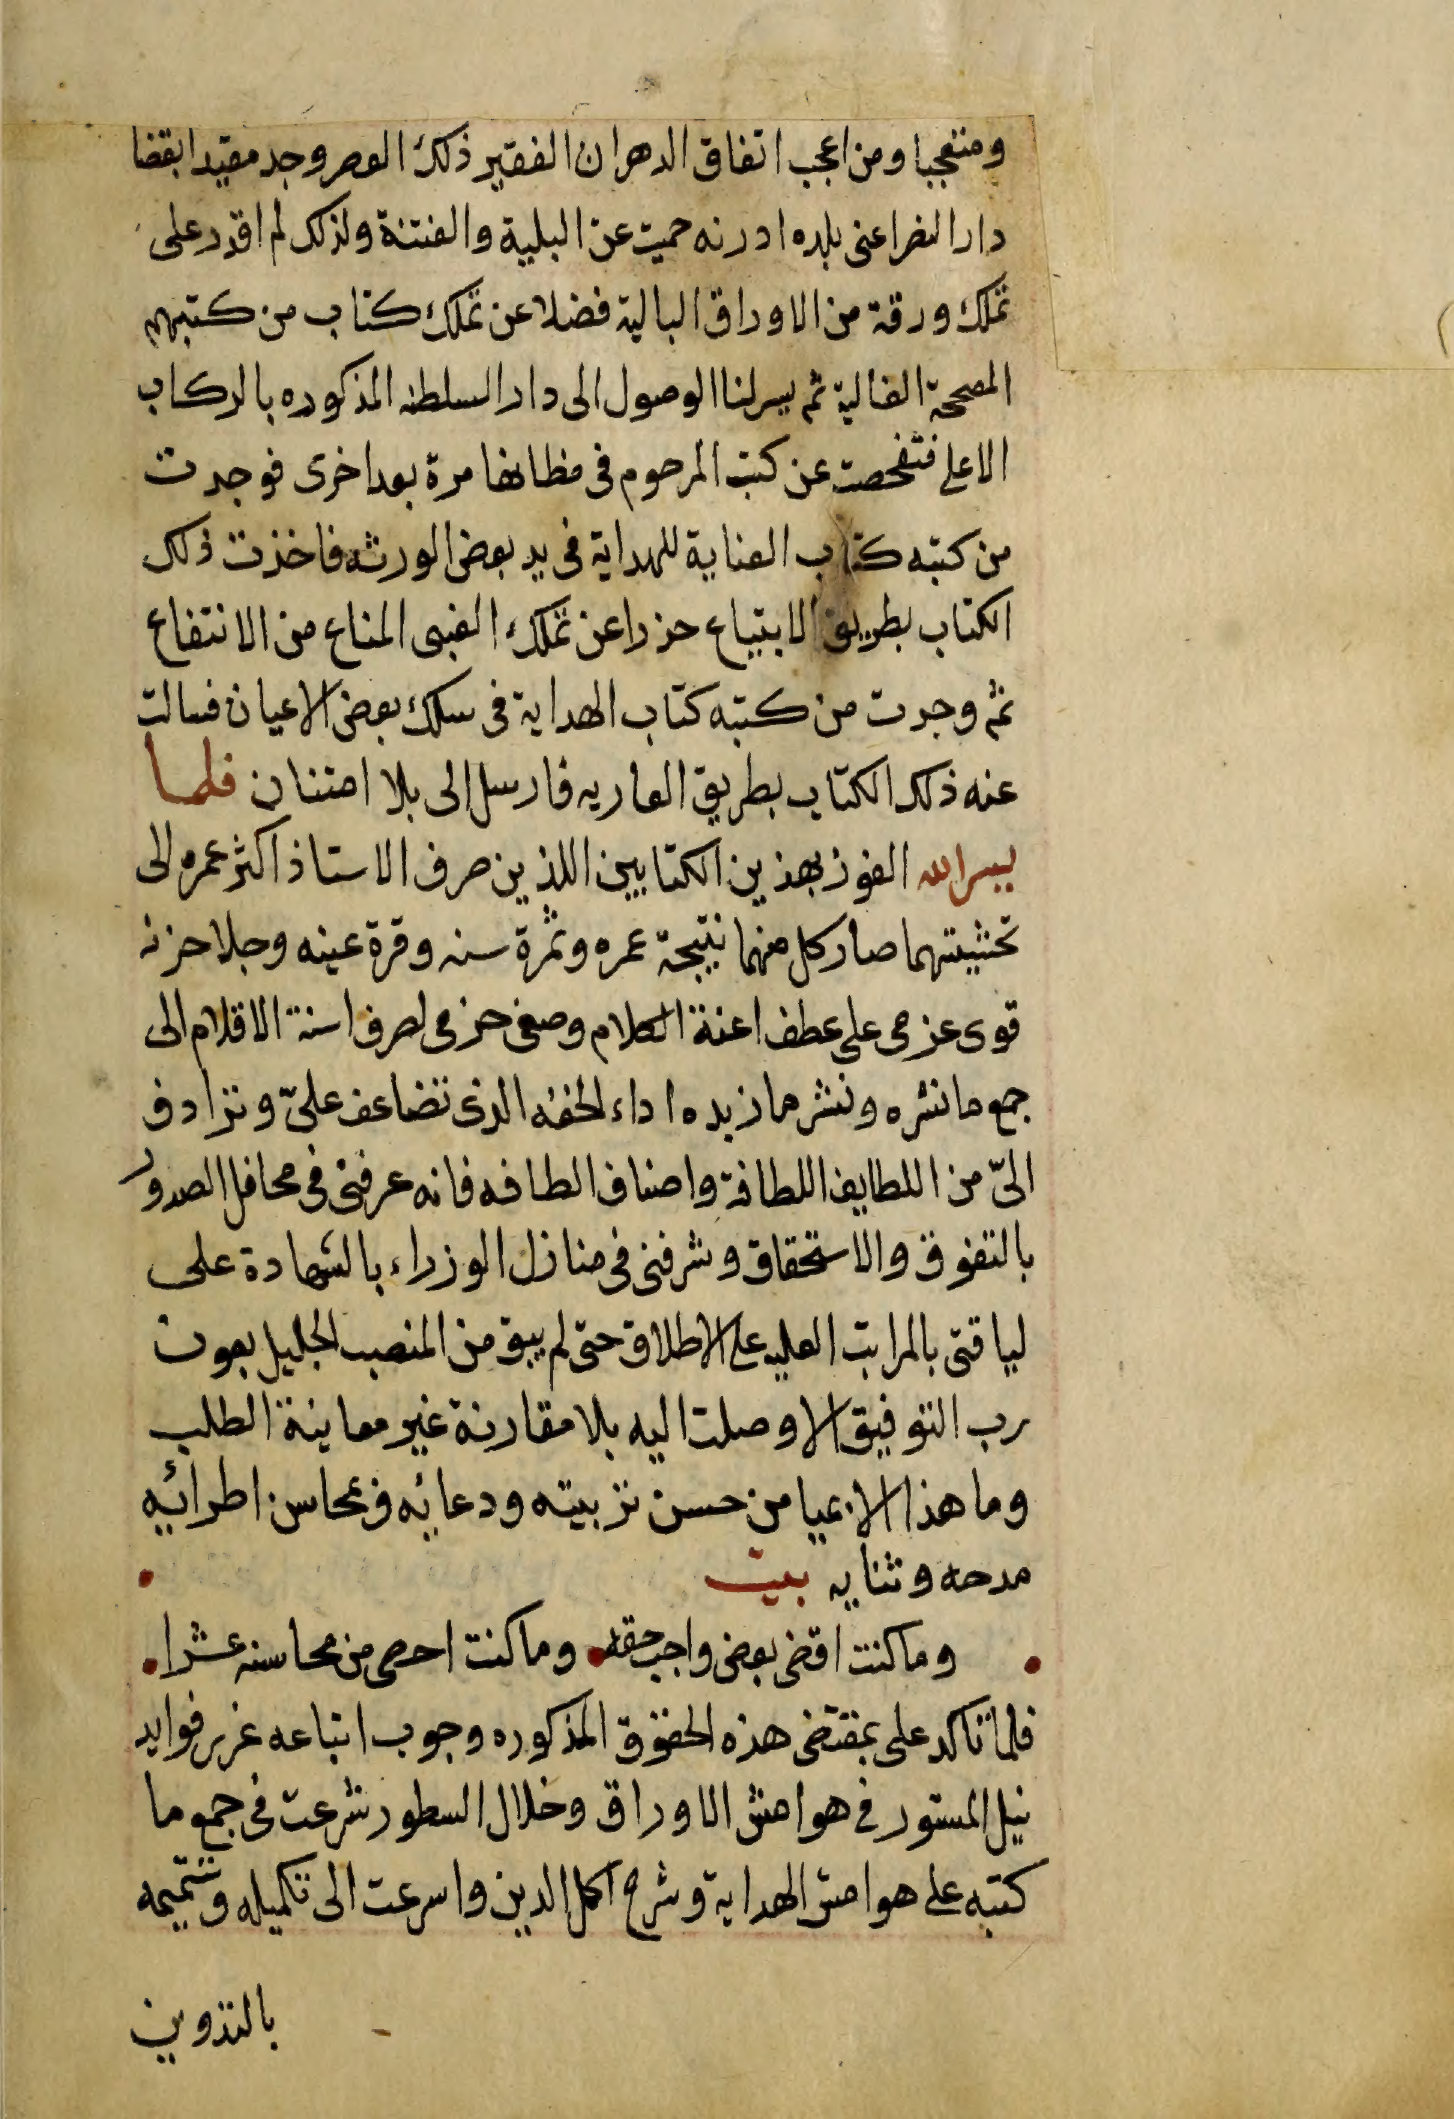 ومتعجبا ومن اعجب اتفاق الدهر ان الفقير ذلك العصر وجد مقيدا بقضا
دار النصر اعنى بلده ادرنه حميت عن البلية والفتنة ولذلك لم اقدر على
تملك ورقة من الاوراق البالية فضلا عن تملك كتاب من كتبهم
المصححة الغالية ثم يسر لنا الوصول الى دار السلطنه المذكوره بالركاب
الاعلى فتفحصت عن كتب المرحوم فى مظانها مرة بعد اخرى فوجدت
من كتبه كتاب العناية للهداية فى يد بعض الورثه فاخذت ذلك
الكتاب بطريق الابتياع حزرا عن تملك الغبى المناع من الانتفاع
ثم وجدت من كتبه كتاب الهداية فى سلك بعض الاعيان فسالت
عنه ذلك الكتاب بطريق العاريه فارسل الى بلا امتنان فلما
يسر الله الفوز بهذين الكتابين اللذين صرف الاستاذ اكثر عمره الى
تحشيتهما صار كل منهما نتيجة عمره وثمرة سنه وقرة عينه وجلا حزنه
قوى عزمى على عطف اعنة الكلام وصغى حزمى لصرف اسنة الاقلام الى
جمع ما نثره ونشر ما زبده اداء لحقه الذى تضاعف علىّ وتزادف
الىّ من اللطايف اللطافة واصناف الطافه فانه عرفنى فى محافل الصدور
بالتفوق والاستحقاق وشرفنى فى منازل الوزراء بالشهادة على
لياقتى بالمراتب العليه على الاطلاق حتى لم يبق من المنصب الجليل بعون
رب التوفيق الا وصلت اليه بلا مقارنة غير معاينة الطلب
وما هذا الا من حسن تربيته ودعائه و محاسن اطرائه
مدحه وثنايه بيت
وما كنت اقضى بعض واجب حقه وما كنت احصى من محاسنه عشرا
فلما تاكد على بمقتضى هذه الحقوق المذكوره وجوب اتباعه غرر فوايد
نيل المستور فى هوامش الاوراق وخلال السطور شرعت فى جمع ما
كتبه على هوامش الهداية وشرح اكمل الدين واسرعت الى تكميله وتتميمه
بالتدوين